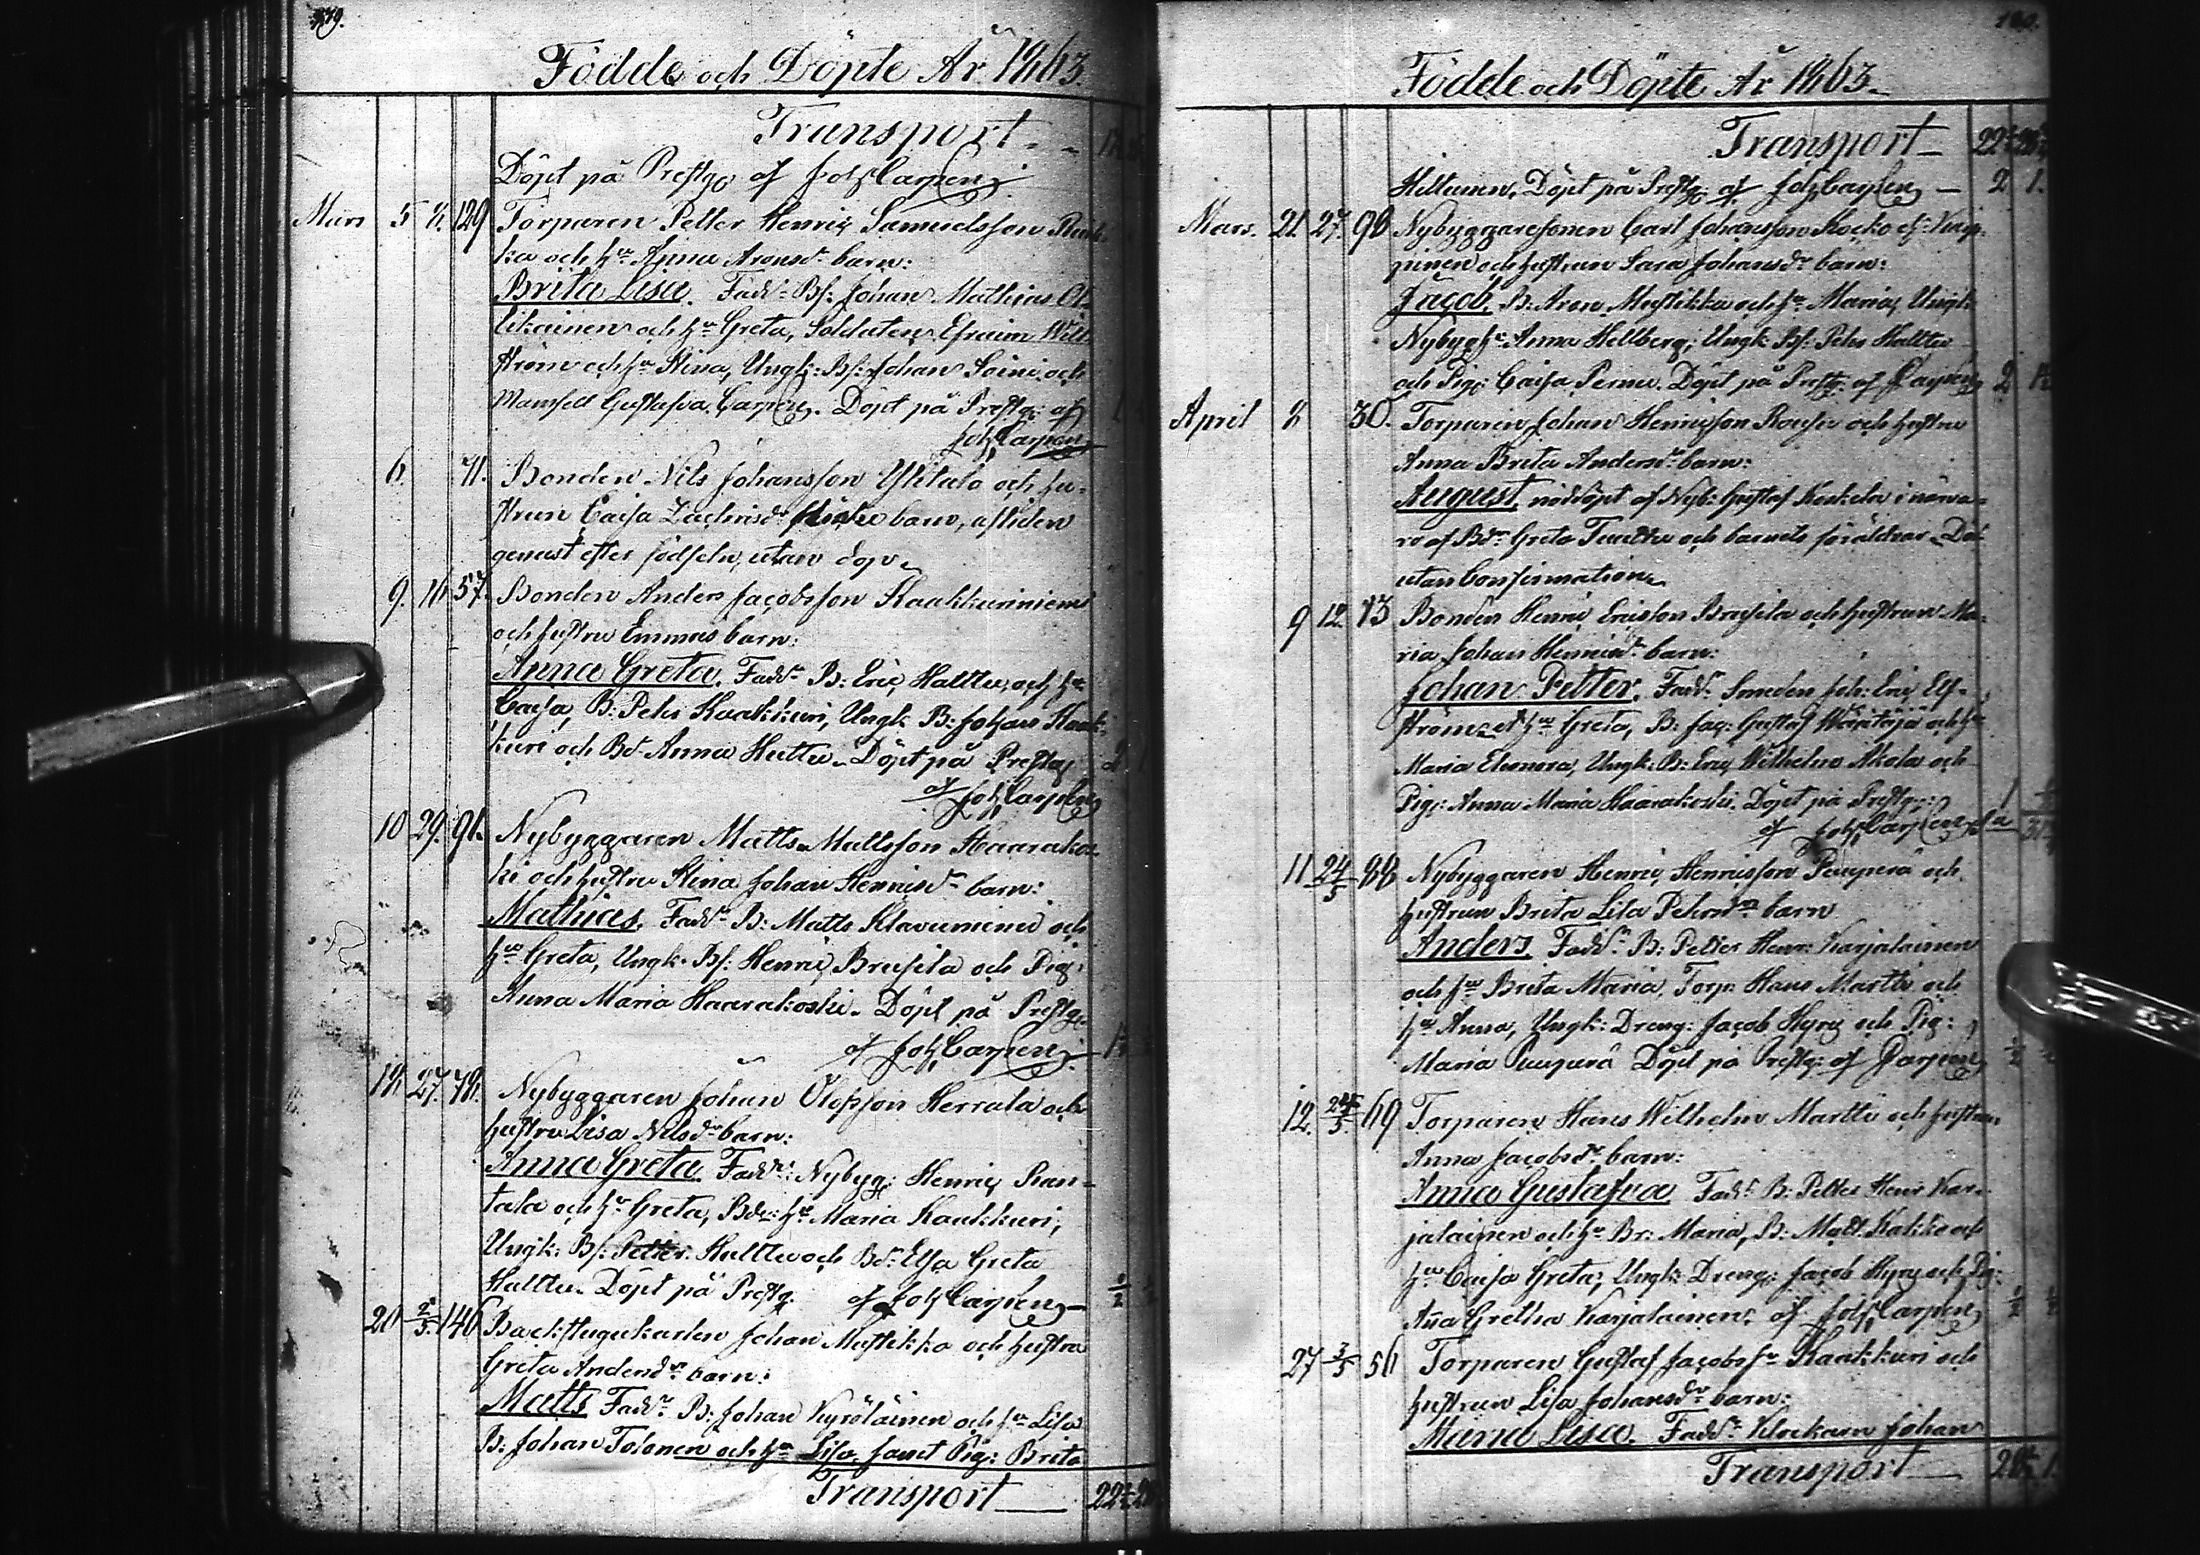 Födde och Döpte År 1863.
Transport
Döpt på Prestg. af Joh Carpen
Mars 5 8. 129 Torparen Petter Henric Samuelsson
ka och hu Anna Aronsdr barn:
Brita Lisa. Fadd: Bs: Johan Mathias
likainen och hu Greta, Soldaten Efraim Will
ström och hu Stina, Ungk: Bs: Johan Soini och
Mamsell Gustafva Carpen. Döpt på Prestg: af
Joh Carpen
6. 71. Bonden Nils Johansson Ylitalo och hu-
strun Caisa Zachrisdr barn, afliden
genast efter födseln, utan dop
9. 16 57. Bonden Anders Jacobsson Kaakkuriniemi
och hustru Emmas barn:
Anna Greta. Faddr B: Eric Halttu, och hu
Caisa, B: Pehr Kaakkuri, Ungk. B: Johan Kaak-
kuri och Bdr Anna Huttu. Döpt på Prestg
af Joh Carpen
10 29. 91. Nybyggaren Matts Mattsson Haarakos-
ki och hustru Stina Johan Henricsdr barn:
Mathias. Faddr B: Matts Klavuniemi och
hu Greta, Ungk. Bs: Henric Brusila och Pig:
Anna Maria Haarakoski. Döpt på Prestg.
af Joh Carpen
18. 27. 78. Nybyggaren Johan Olofsson Herrala och
hustru Lisa Nilsdr barn:
Anna Greta. Faddr: Nybyg: Henric
tala och hu Greta, Bde: hu Maria Kaakkuri,
Ungk. Bs: Petter Halttu och Bdr Elsa Greta
Halttu. Döpt på Prestg. af Joh Carpen
20 2/5. 146 Backstugukarlen Johan Mustikka och hustru
Greta Andersdr barn:
Matts Faddr B: Johan Kyröläinen och hu Lisa
B: Johan Tolonen och hu Lisa, samt Pig: Brita
Transport 22½
Födde och Döpte År 1863.
Transport 22½
Döpt på Prestg: af Joh Carpen 2 1.
Mars. 21. 27. 98 Nybyggaresonen Carl Johansson Kocko
pinen och hustrun Sara Johansdr barn:
Jacob. B. Aron Mustikka och hu Maria, Ungk:
Nybyg hu Anna Hellberg; Ungk: Bs: Pehr Halttu
och Pig: Caisa Perna. Döpt på Prestg: af Carpen 2
April 8 30. Torparen Johan Henricsson och hustru
Anna Brita Andersdr barn:
August, nöddöpt af Nyb: Gustaf i närva-
ro af Bdr Greta och barnets föräldrar. Död
utan Confirmation
9 12. 73 Bonden Henric Ericsson Brusila och hustrun Ma-
ria Johan Henricsdr barn:
Johan Petter. Faddr: Smeden Joh: Eric Elf-
ström och hu Greta, B: Jac: Gustaf Määttäjä och hu
Maria Eleonora, Ungk: B: Eric Wilhelm Akola och
Pig: Anna Maria Haarakoski. Döpt på Prestg:
af Joh Carpen
11 24/5 88 Nybyggaren Henric Henricsson Paupera och
hustrun Brita Lisa Pehrsdr barn
Anders. Faddr B: Petter Henr: Karjalainen
och hu Brita Maria, Torp: Hans Martti och
hu Anna, Ungk: Dreng: Jacob Kyrö och Pig:
Maria Döpt på Prestg: af Carpen ½
12. 24/5. 69 Torparen Hans Wilhelm Martti och hustrun
Anna Jacobsdr barn:
Anna Gustafva Fadd: B: Petter Henr Kar-
jalainen och hu Br: Maria, B: Matt. Kokko och
hu Caisa Greta, Ungk: Dreng: Jacob Kyrö och Pig:
Aña Gretha Karjalainen: af Joh Carpen ½
27 3/5 56 Torparen Gustaf Jacobs Kaakkuri och
hustrun Lisa Johansdr barn:
Maria Lisa. Faddr Klockarn Johan
Transport